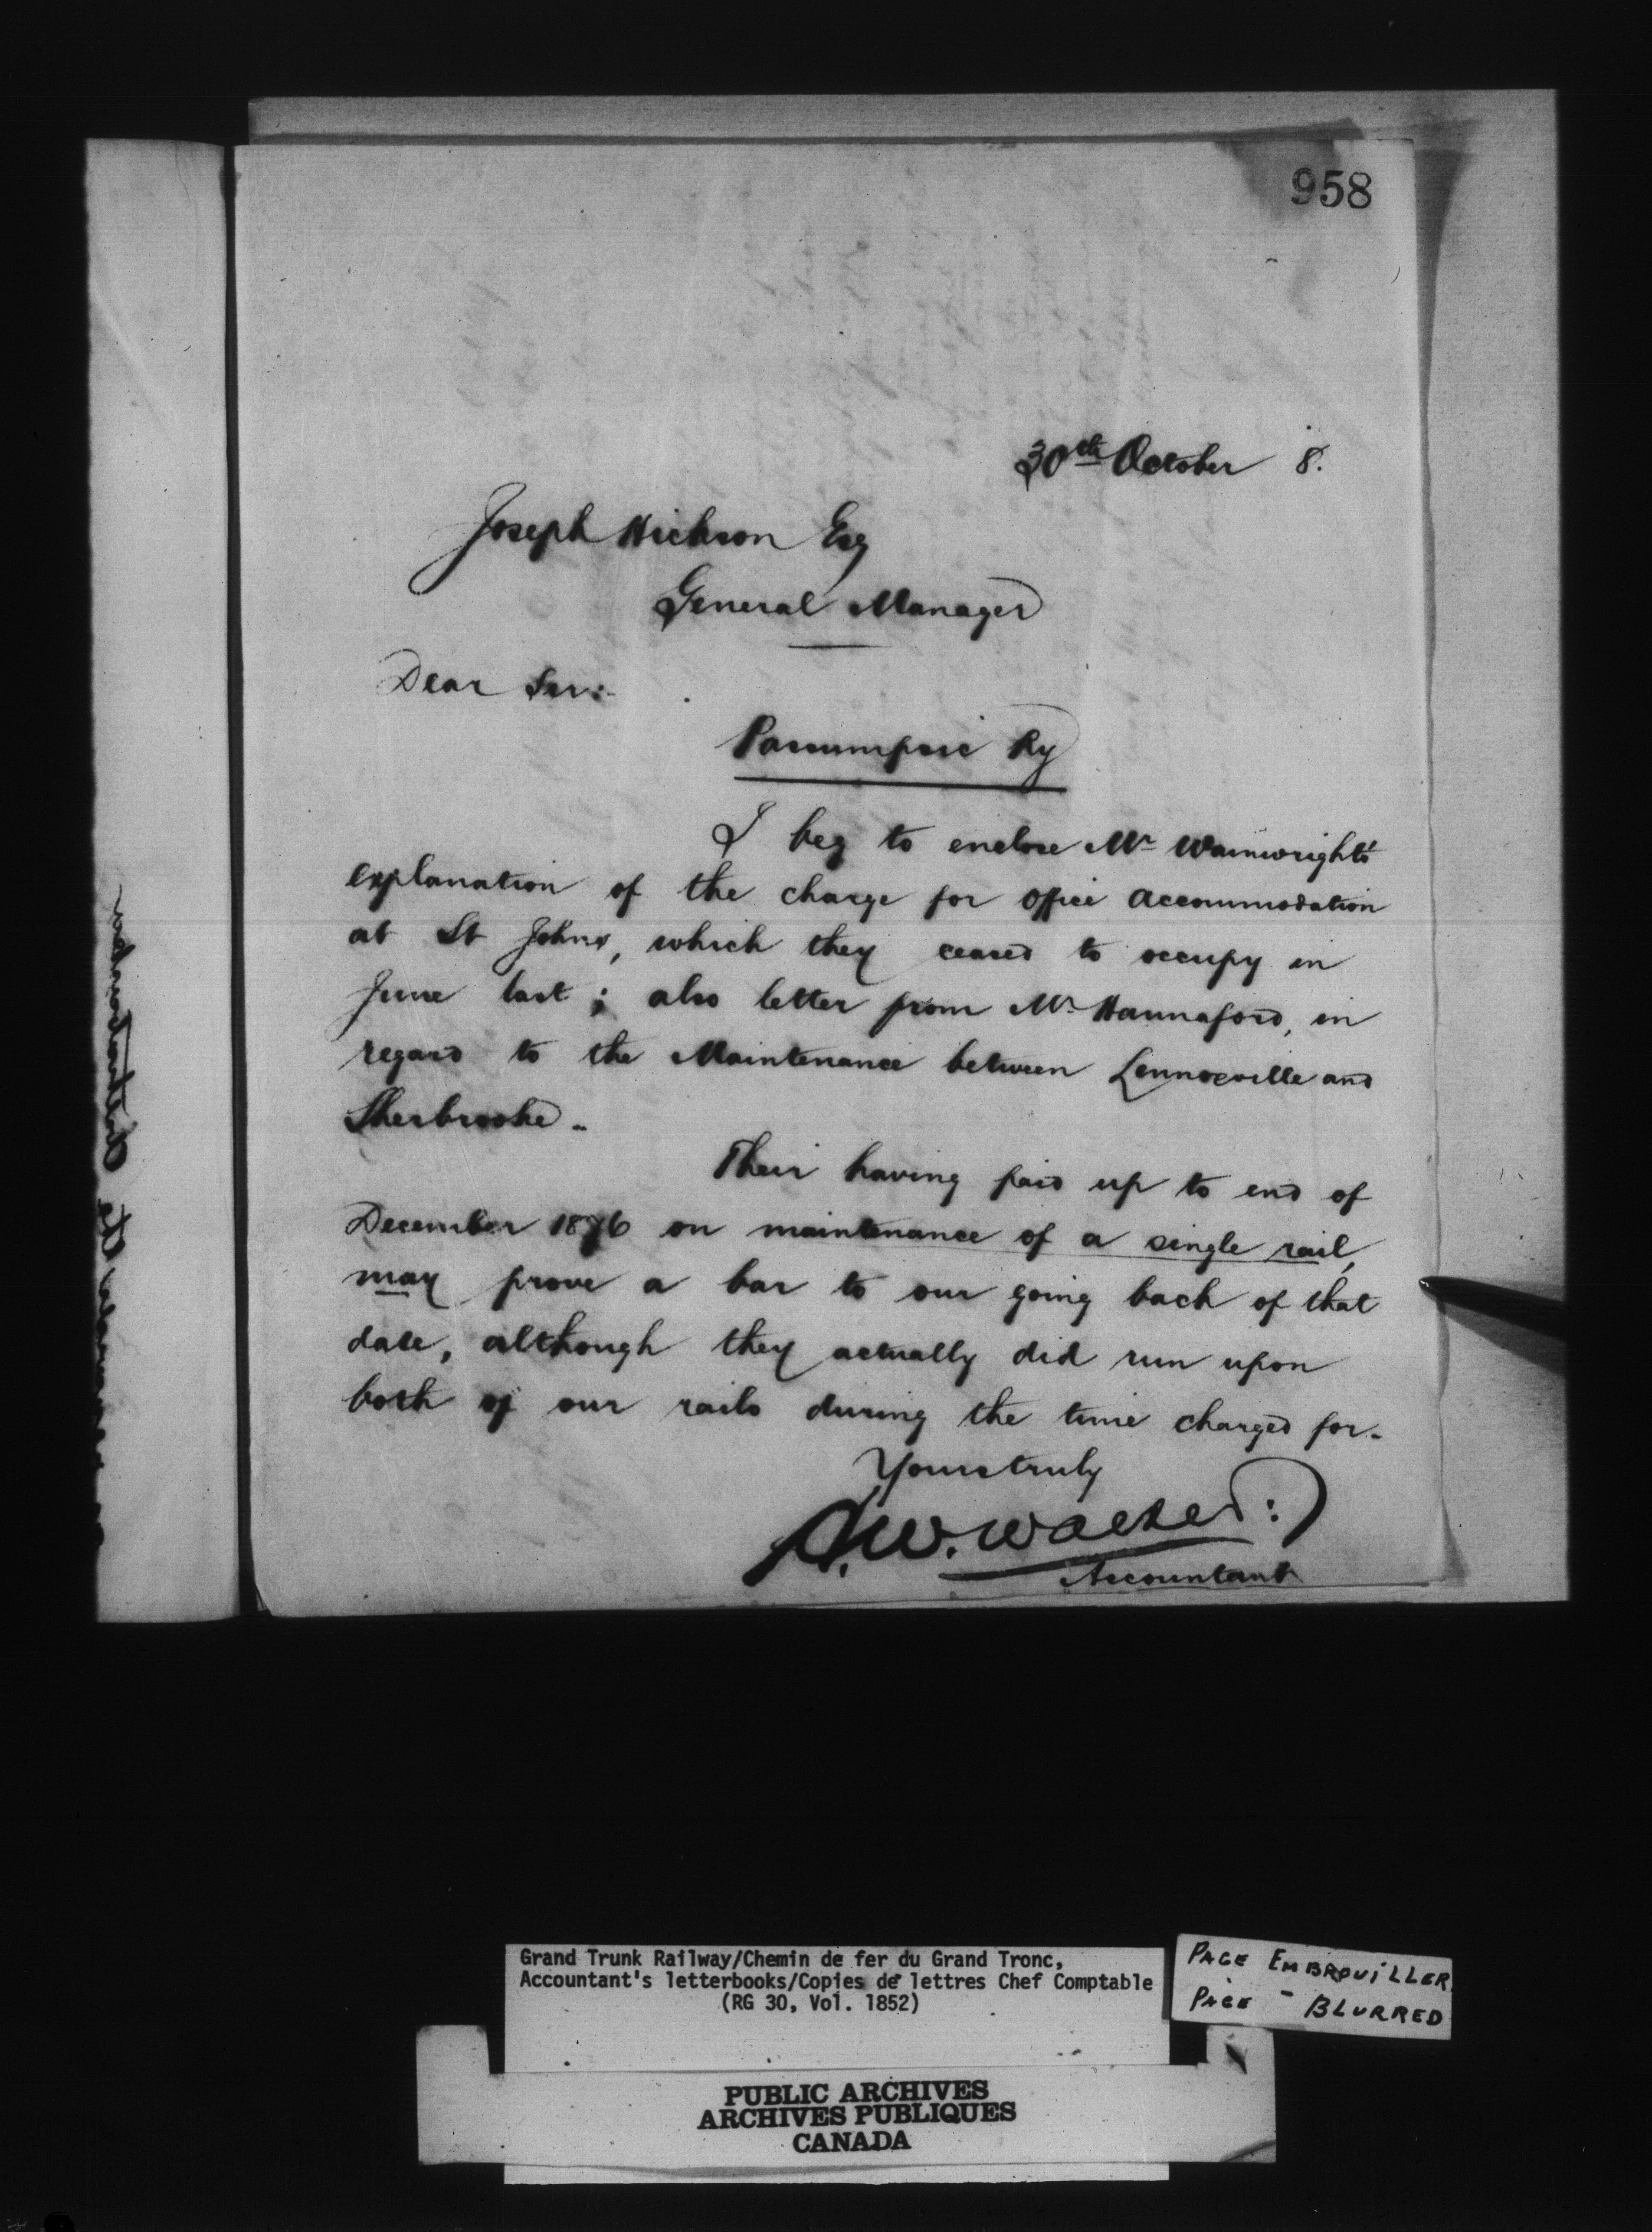 958
30th October 8.
Joseph Hickson Esq
General Manager
Dear Sir:
Passumpsic Ry
I beg to enclose Mr Wainwright's
explanation of the charge for office accommodation
at St Johns, which they ceased to occupy in
June last; also letter from Mr Hannaford, in
regard to the Maintenance between Lennoxville and
Sherbrooke.
Their having paid up to end of
December 1876 on maintenance of a single rail,
may prove a bar to our going back of that
date, although they actually did run upon
both of our rails during the time charged for.
Yours truly
W. Walker
Accountant
Grand Trunk Railway/Chemin de fer du Grand Tronc,
Accountant's letterbooks/Copies de lettres Chef Comptable
(RG 30, Vol. 1852)
PAGE EMBROUILLER
PAGE - BLURRED
PUBLIC ARCHIVES
ARCHIVES PUBLIQUES
CANADA